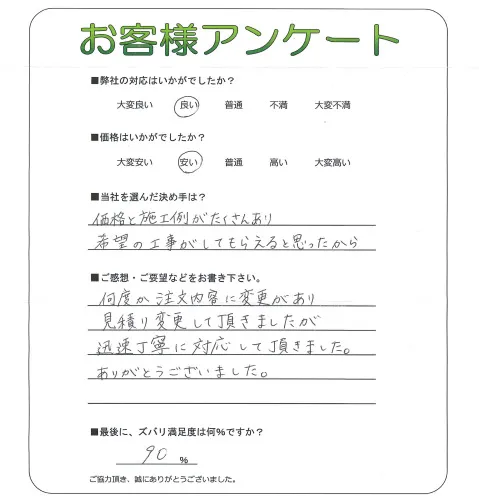 お客様アンケート
■弊社の対応はいかがでしたか？
大変良い 良い 普通 不満 大変不満
■価格はいかがでしたか？
大変安い 安い 普通 高い 大変高い
■当社を選んだ決め手は？
価格と施工例がたくさんあり
希望の工事がしてもらえると思ったから
■ご感想・ご要望などをお書き下さい。
何度か注文内容に変更があり
見積り変更して頂きましたが
迅速丁寧に対応して頂きました。
ありがとうございました。
■最後に、ズバリ満足度は何%ですか？
90 %
ご協力頂き、誠にありがとうございました。